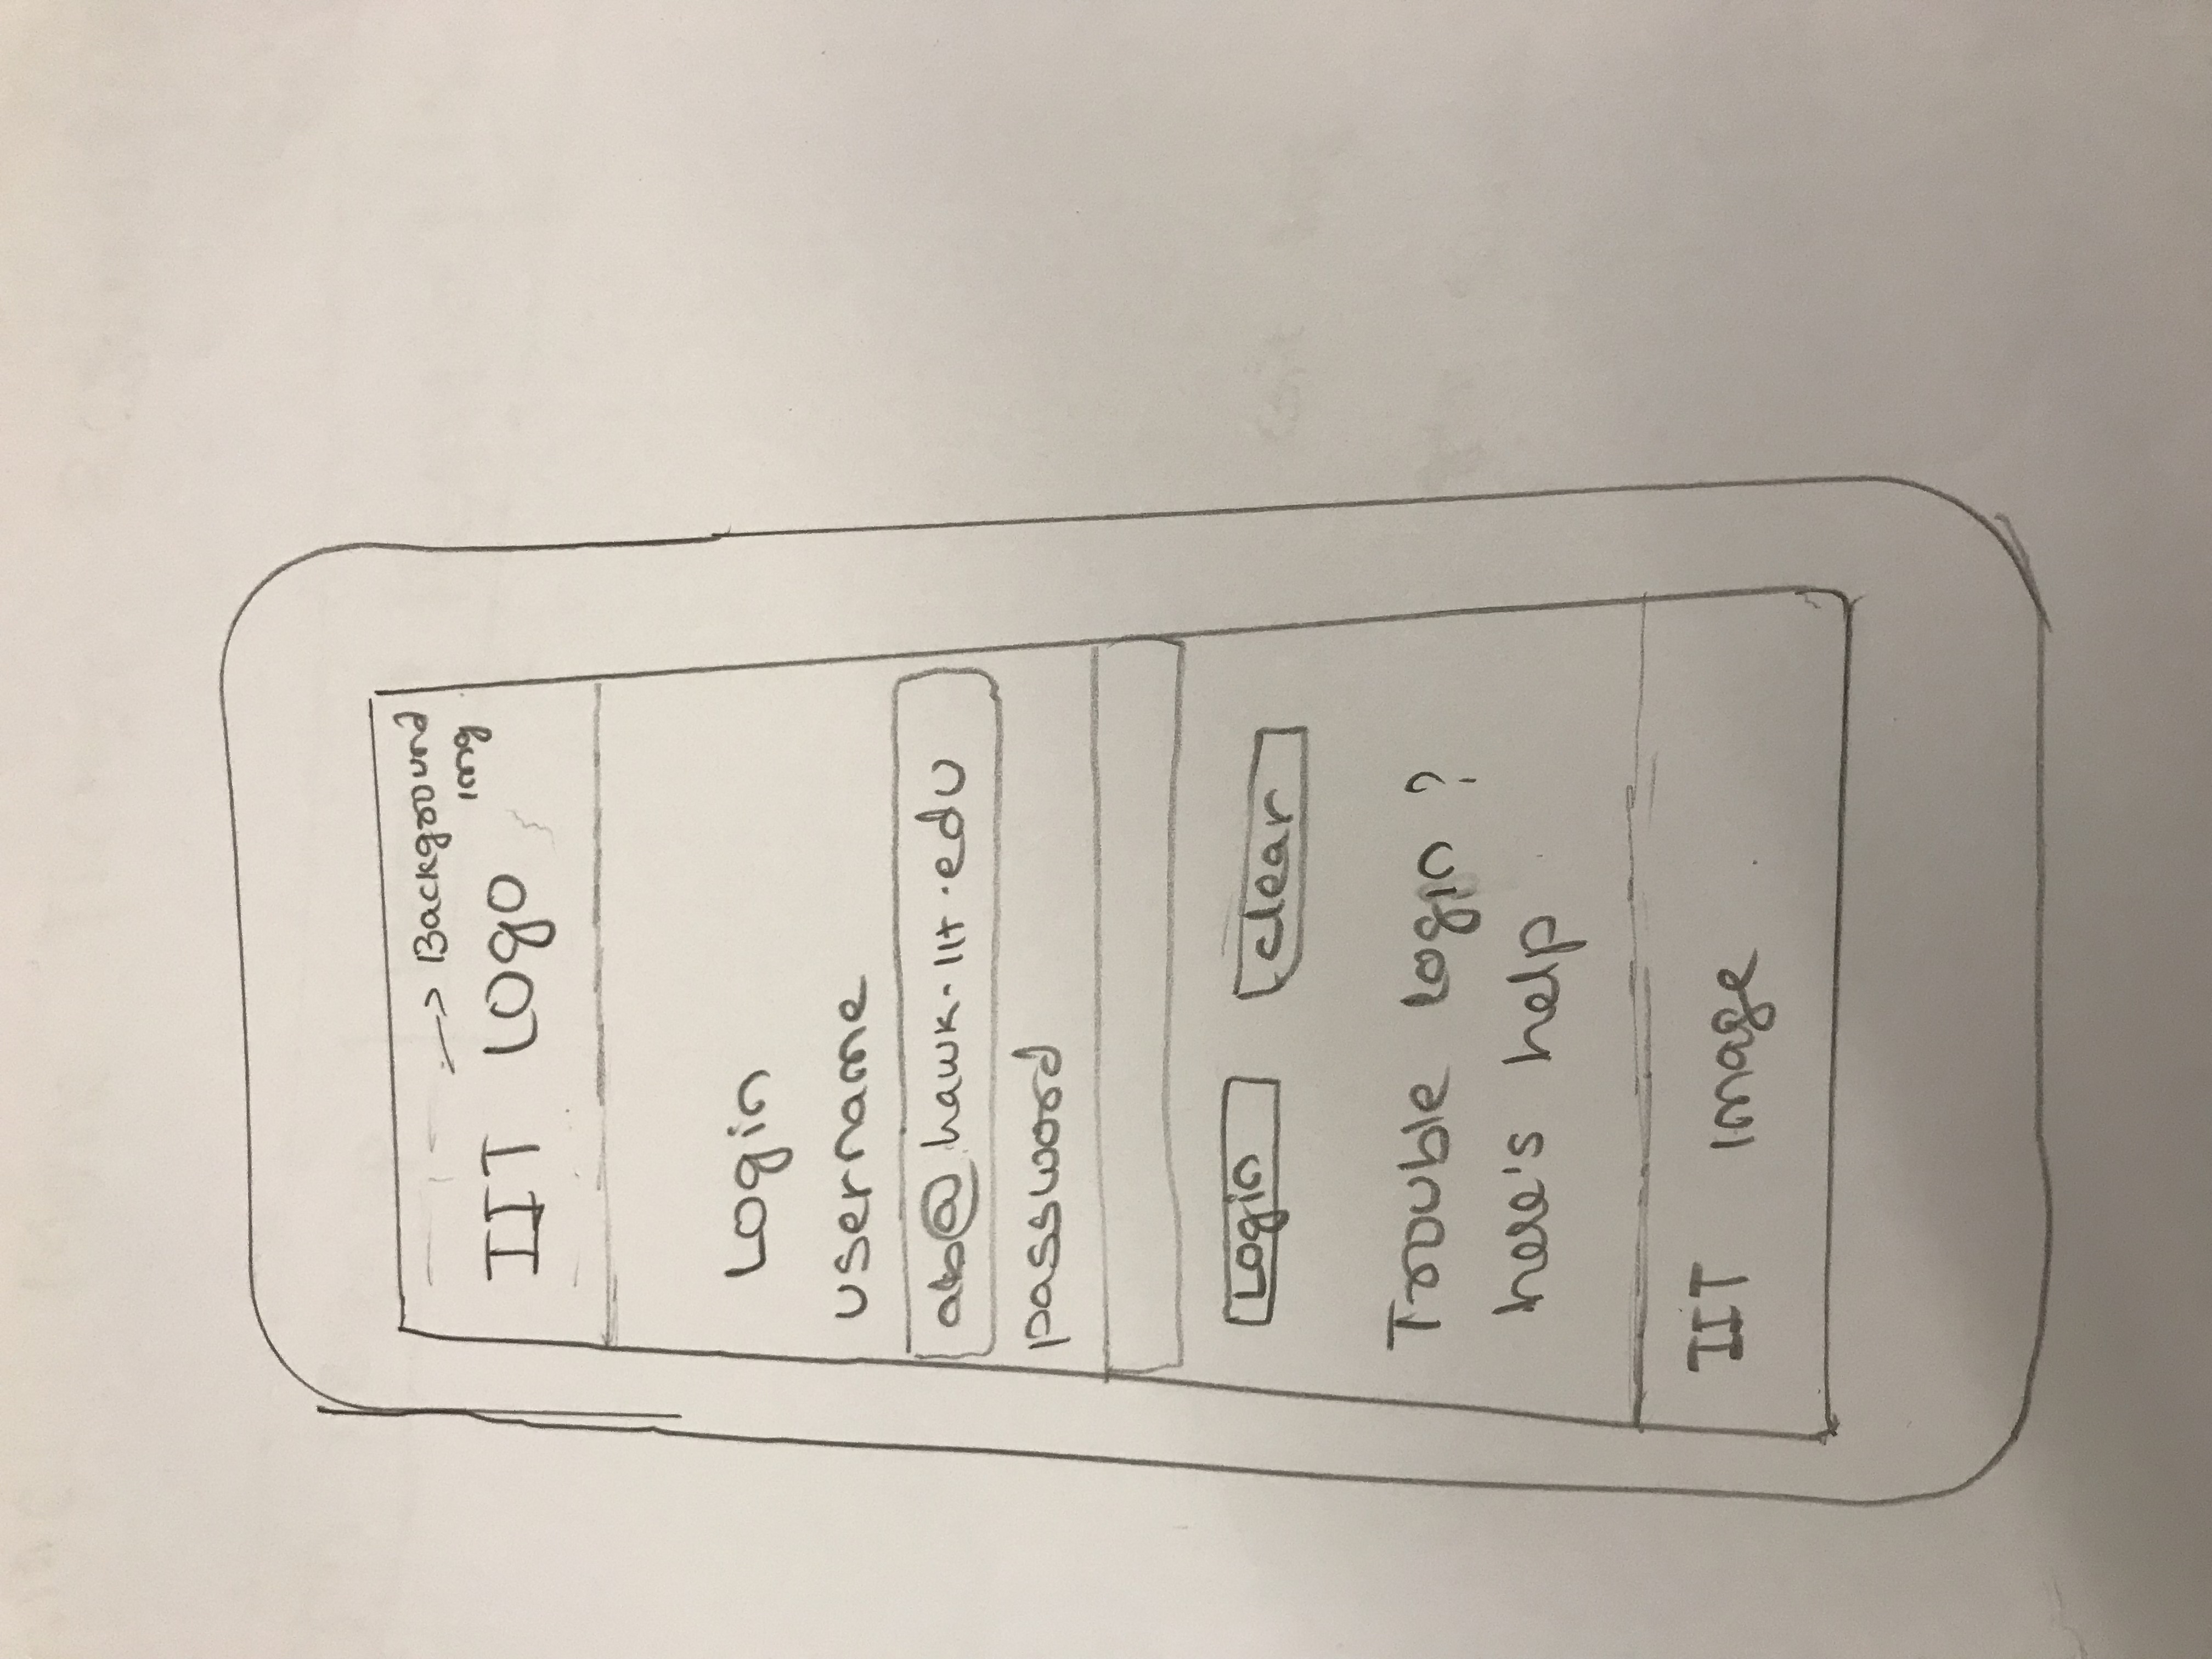 → Background
img
IIT Logo
Login
username
ab@hawk-iit.edu
password
Login clear
Trouble Login ?
here's help
IIT image